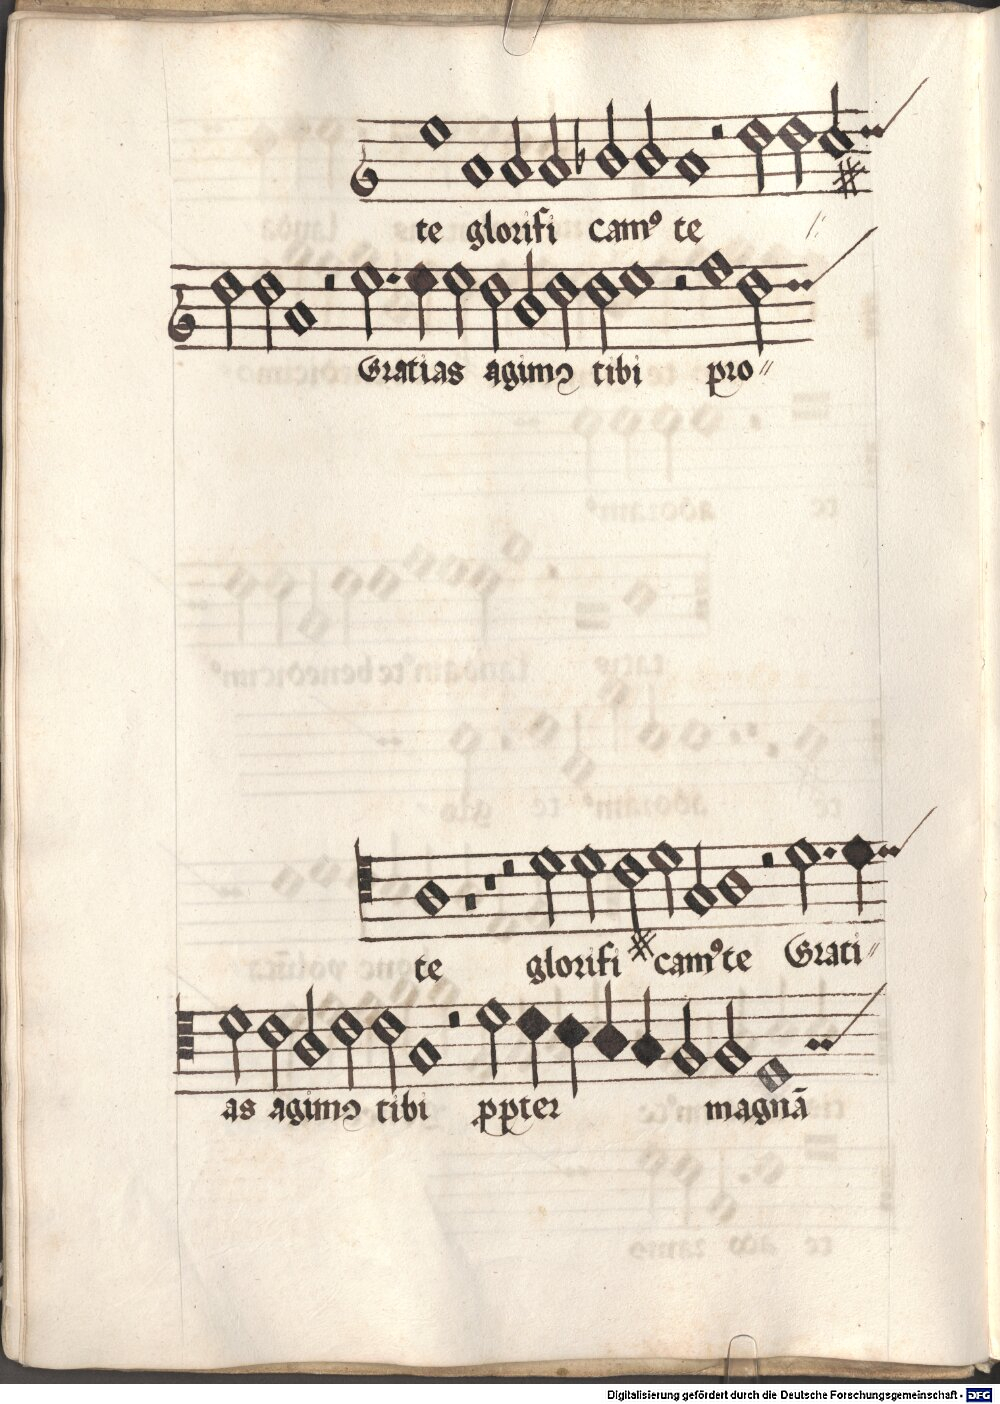 te glorifi camꝰ te
Gratias agimꝰ tibi pro〃
te glorifi camꝰ te Grati〃
as agimꝰ tibi ꝓpter magnā
Digitalisierung gefördert durch die Deutsche Forschungsgemeinschaft - DFG